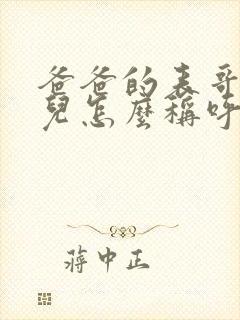 爸爸的表哥
兒怎麼稱呼
蔣中正